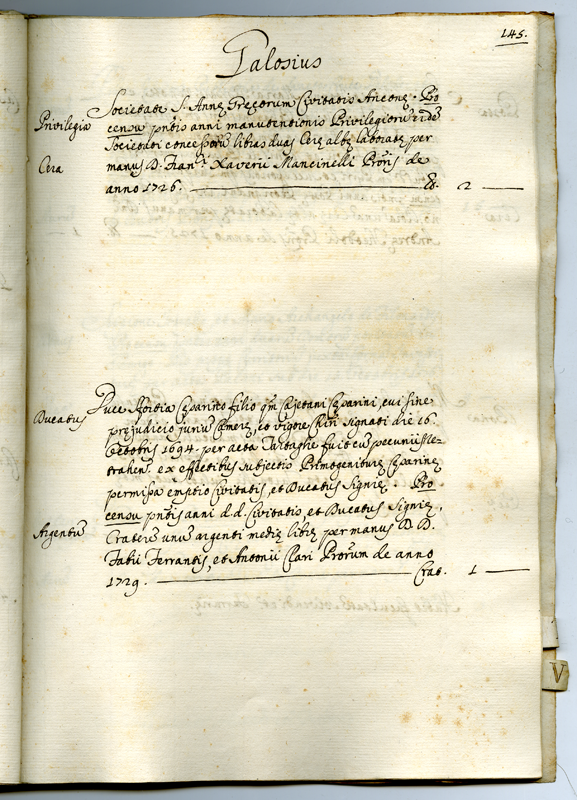 145.
Talosius
Privilegia
Societate S. Annę Gręcorum Civitatis Anconę. Pro
censu pntis anni manutentionis Privilegiorum
Societati concessorum libras duas Cerę albę laboratę per
Cera
manus D. Fran. Xaverii Mancinelli Proris de
anno 1726. 2
Ducatus
Duce Sfortia Cęsarino filio qm Cajetani Cęsarini, cui sine
prejudicio jurium Camerę, et vigore Chiri signati die 16.
Octobris 1694. per acta fuit cum pecuniis
ex effectibus subjectis Primogeniturę Cęsarinę
permissa emptio Civitatis, et Ducatus Signię. Pro
censu pntis anni d.d. Civitatis, et Ducatus Signię,
Argentum
Craterem unum argenti medię librę per manus D.D.
Fabii Ferrantis, et Antonii Clari Prorum de anno
1729. Crat. 1
V